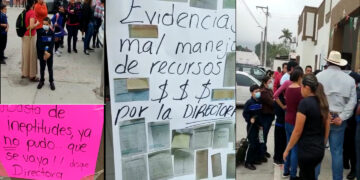 Evidencia
mal manejo
de recursos
$ $ $
por la DIRECTORA
Costa de
ineptitudes, ya
no pudo... que
se vaya!!
Directora